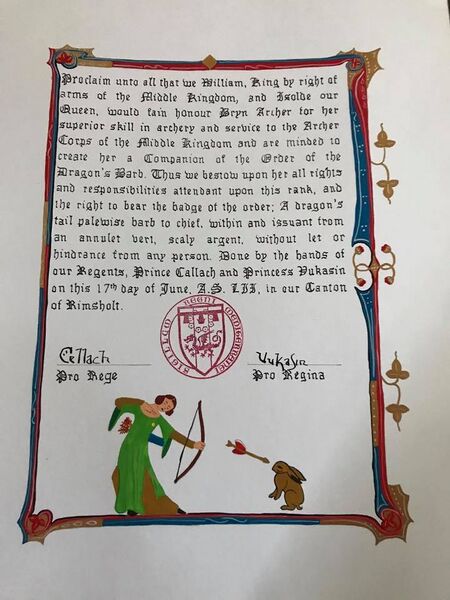 Proclaim unto all that we William, King by right of
arms of the Middle Kingdom, and Isolde our
Queen, would fain honour Bryn Archer for her
superior skill in archery and service to the Archer
Corps of the Middle Kingdom and are minded to
create her a Companion of the Order of the
Dragon's Barb. Thus we bestow upon her all rights
and responsibilities attendant upon this rank, and
the right to bear the badge of the order; A dragon's
tail palewise barb to chief, within and issuant from
an annulet vert, scaly argent, without let or
hindrance from any person. Done by the hands of
our Regents, Prince Callach and Princess Vukasin
on this 17th day of June, A.S. LII, in our Canton
of Rimsholt.
Cellach
Vukasin
Pro Rege
Pro Regina